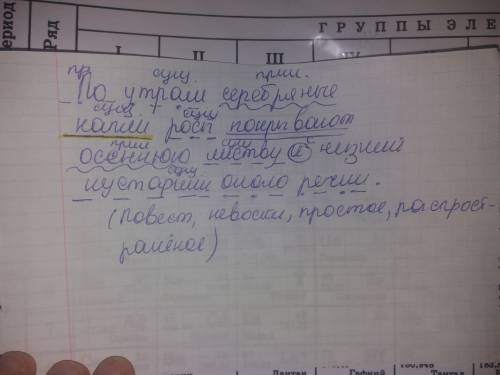 ериод
Ряд
ГРУППЫ ЭЛЕ
I II III IV
пр. сущ. прил.
По утрам серебряные
сущ. сущ.
капли росы покрывают
прил сущ
осеннюю листву и низкий
сущ
кустарник около речки.
(Повест, невоскл, простое, распрост-
ранёное)
Лантан Гафний Тантал